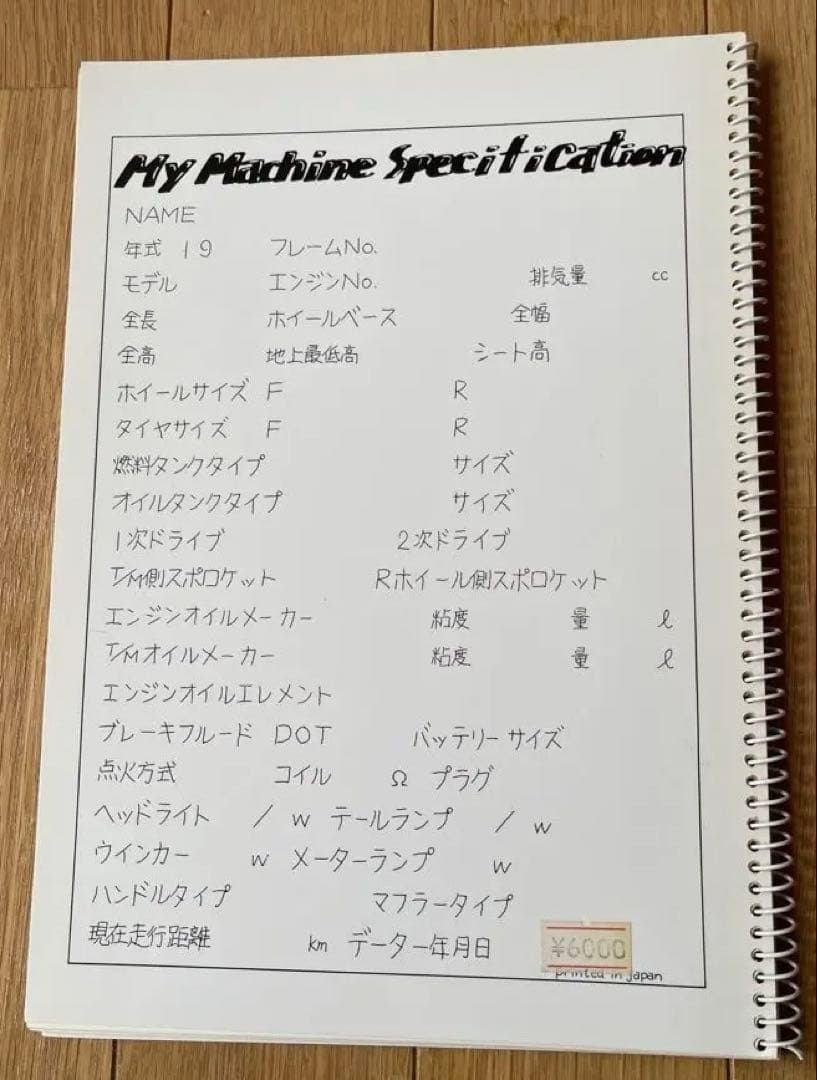 My Machine Specification
NAME
年式 19 フレームNo.
モデル エンジンNo. 排気量 cc
全長 ホイールベース 全幅
全高 地上最低高 シート高
ホイールサイズ F R
タイヤサイズ F R
燃料タンクタイプ サイズ
オイルタンクタイプ サイズ
1次ドライブ 2次ドライブ
T/M側スポロケット Rホイール側スポロケット
エンジンオイルメーカー 粘度 量 ℓ
T/Mオイルメーカー 粘度 量 ℓ
エンジンオイルエレメント
ブレーキフルード DOT バッテリーサイズ
点火方式 コイル Ω プラグ
ヘッドライト / w テールランプ / w
ウインカー w メーターランプ w
ハンドルタイプ マフラータイプ
現在走行距離 km データー年月日
¥6000
printed in japan